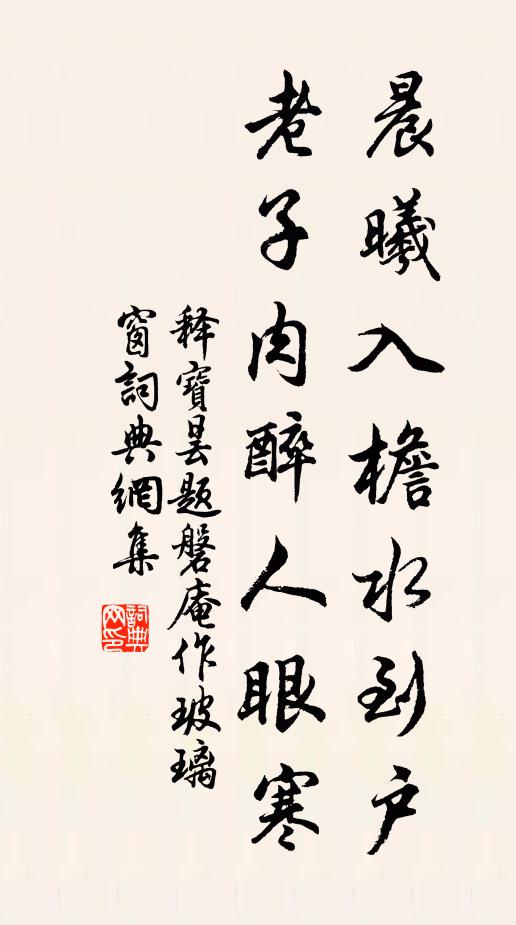 晨曦入檐水到户
老子肉醉人眼寒
释寶昙题磐庵作玻璃
窗詞典網集
詞典网印